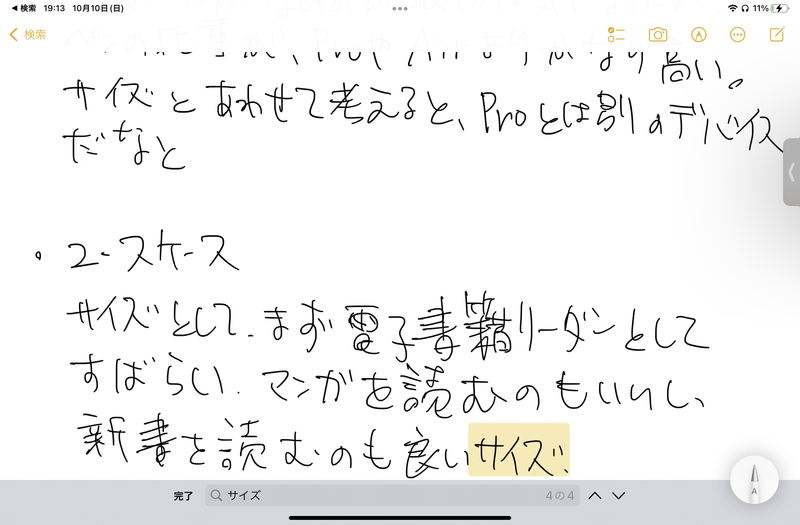 ◀ 検索 19:13 10月10日(日) 11%
検索
高い。
サイズとあわせて考えると、Proとは別のデバイス
だなと
・ユースケース
サイズとして、まず電子書籍リーダンとして
すばらい、マンガを読むのもいいし、
新書を読むのも良いサイズ、
完了 サイズ 4の4
A